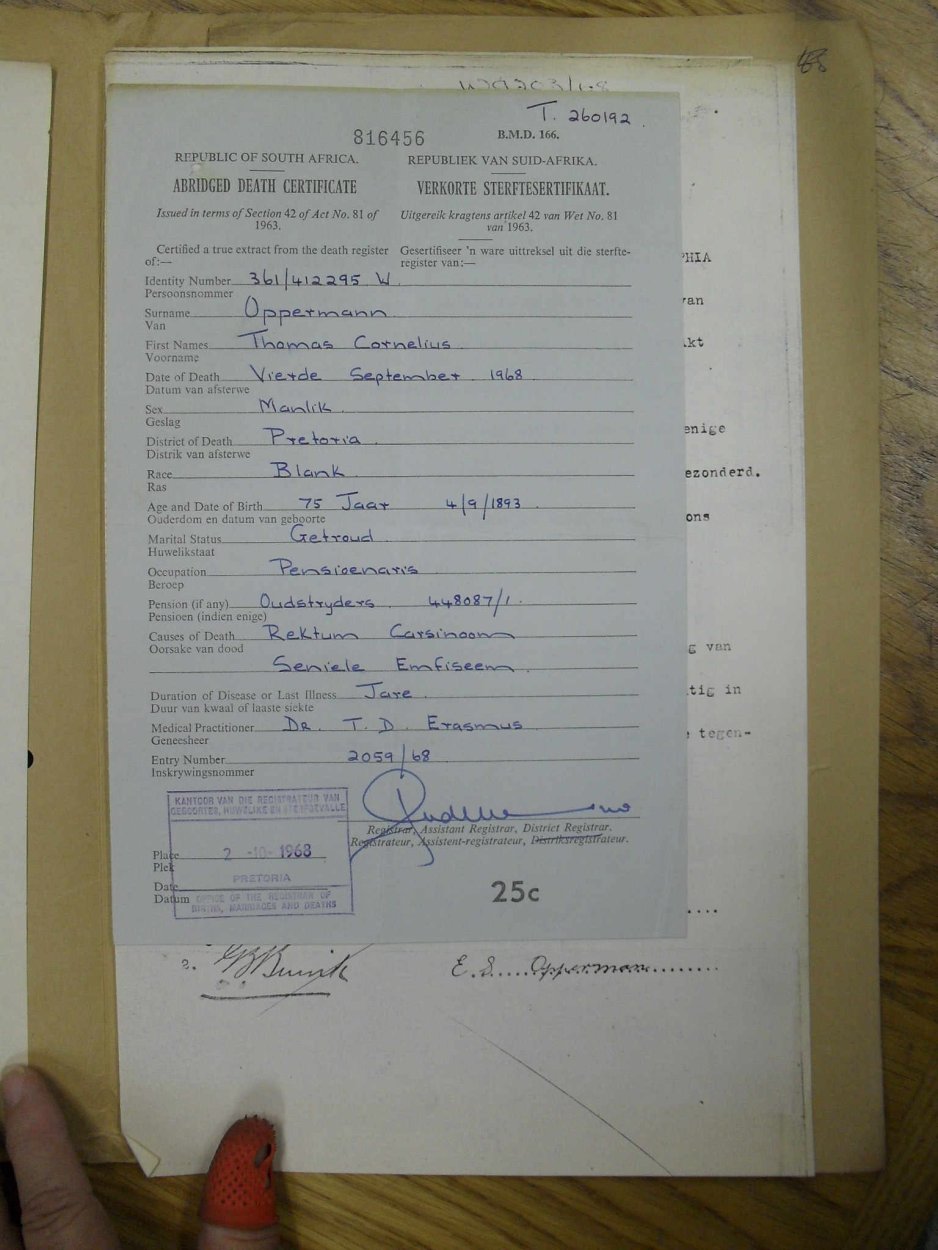 T. 260192.
816456
B.M.D. 166.
REPUBLIC OF SOUTH AFRICA.
REPUBLIEK VAN SUID-AFRIKA.
ABRIDGED DEATH CERTIFICATE
VERKORTE STERFTESERTIFIKAAT.
Issued in terms of Section 42 of Act No. 81 of
1963.
Uitgereik kragtens artikel 42 van Wet No. 81
van 1963.
Certified a true extract from the death register
of:—
Gesertifiseer 'n ware uittreksel uit die sterfte-
register van:—
Identity Number 361/412295 W
Persoonsnommer
Surname Oppermann
Van
First Names Thomas Cornelius
Voorname
Date of Death Vierde September 1968
Datum van afsterwe
Sex Manlik
Geslag
District of Death Pretoria
Distrik van afsterwe
Race Blank
Ras
Age and Date of Birth 75 Jaar 4/9/1893
Ouderdom en datum van geboorte
Marital Status Getroud
Huwelikstaat
Occupation Pensioenaris
Beroep
Pension (if any) Oudstryders 448087/1.
Pensioen (indien enige)
Causes of Death Rektum Carsinoom
Oorsake van dood
Seniele Emfiseem
Duration of Disease or Last Illness Jare
Duur van kwaal of laaste siekte
Medical Practitioner Dr. T. D. Erasmus
Geneesheer
Entry Number 2059/68
Inskrywingsnommer
KANTOOR VAN DIE REGISTRATEUR VAN
GEBOORTES, HUWELIKE EN STERFGEVALLE
Registrar, Assistant Registrar, District Registrar.
Registrateur, Assistent-registrateur, Distriksregistrateur.
Place
Plek
2 -10- 1968
PRETORIA
Date
Datum
OFFICE OF THE REGISTRAR OF
BIRTHS, MARRIAGES AND DEATHS
25c
PHIA
van
akt
enige
ezonderd.
ons
g van
tig in
e tegen-
2.
E. S. Opperman